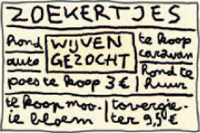 ZOEKERTJES
Hond
auto
WIJVEN
GEZOCHT
te koop
caravan
poes te koop 3 €
Hond te
huur
te koop moo-
ie bloem
tovergie-
ter 9,5 €